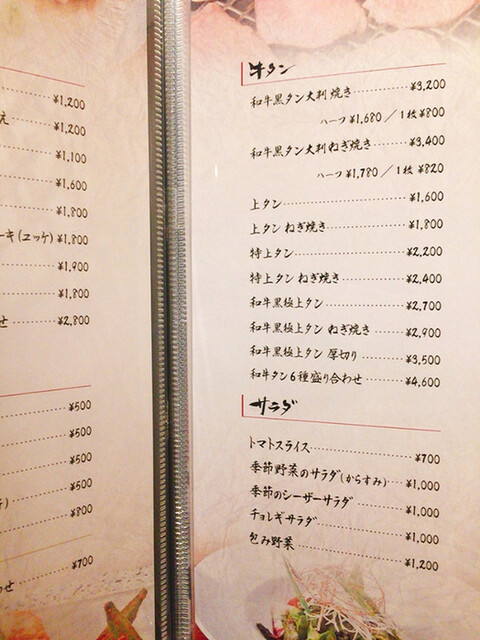 ¥1,200
え ¥1,200
¥1,100
¥1,600
¥1,800
ーキ(ユッケ) ¥1,800
¥1,900
¥1,800
せ ¥2,800
¥500
¥500
¥500
¥500
¥800
¥700
わせ
牛タン
和牛黒タン大判焼き ¥3,200
ハーフ ¥1,680 / 1枚 ¥800
和牛黒タン大判ねぎ焼き ¥3,400
ハーフ ¥1,780 / 1枚 ¥820
上タン ¥1,600
上タンねぎ焼き ¥1,800
特上タン ¥2,200
特上タン ねぎ焼き ¥2,400
和牛黒極上タン ¥2,700
和牛黒極上タン ねぎ焼き ¥2,900
和牛黒極上タン 厚切り ¥3,500
和牛タン6種盛り合わせ ¥4,600
サラダ
トマトスライス ¥700
季節野菜のサラダ(からすみ) ¥1,000
季節のシーザーサラダ ¥1,000
チョレギサラダ ¥1,000
包み野菜 ¥1,200